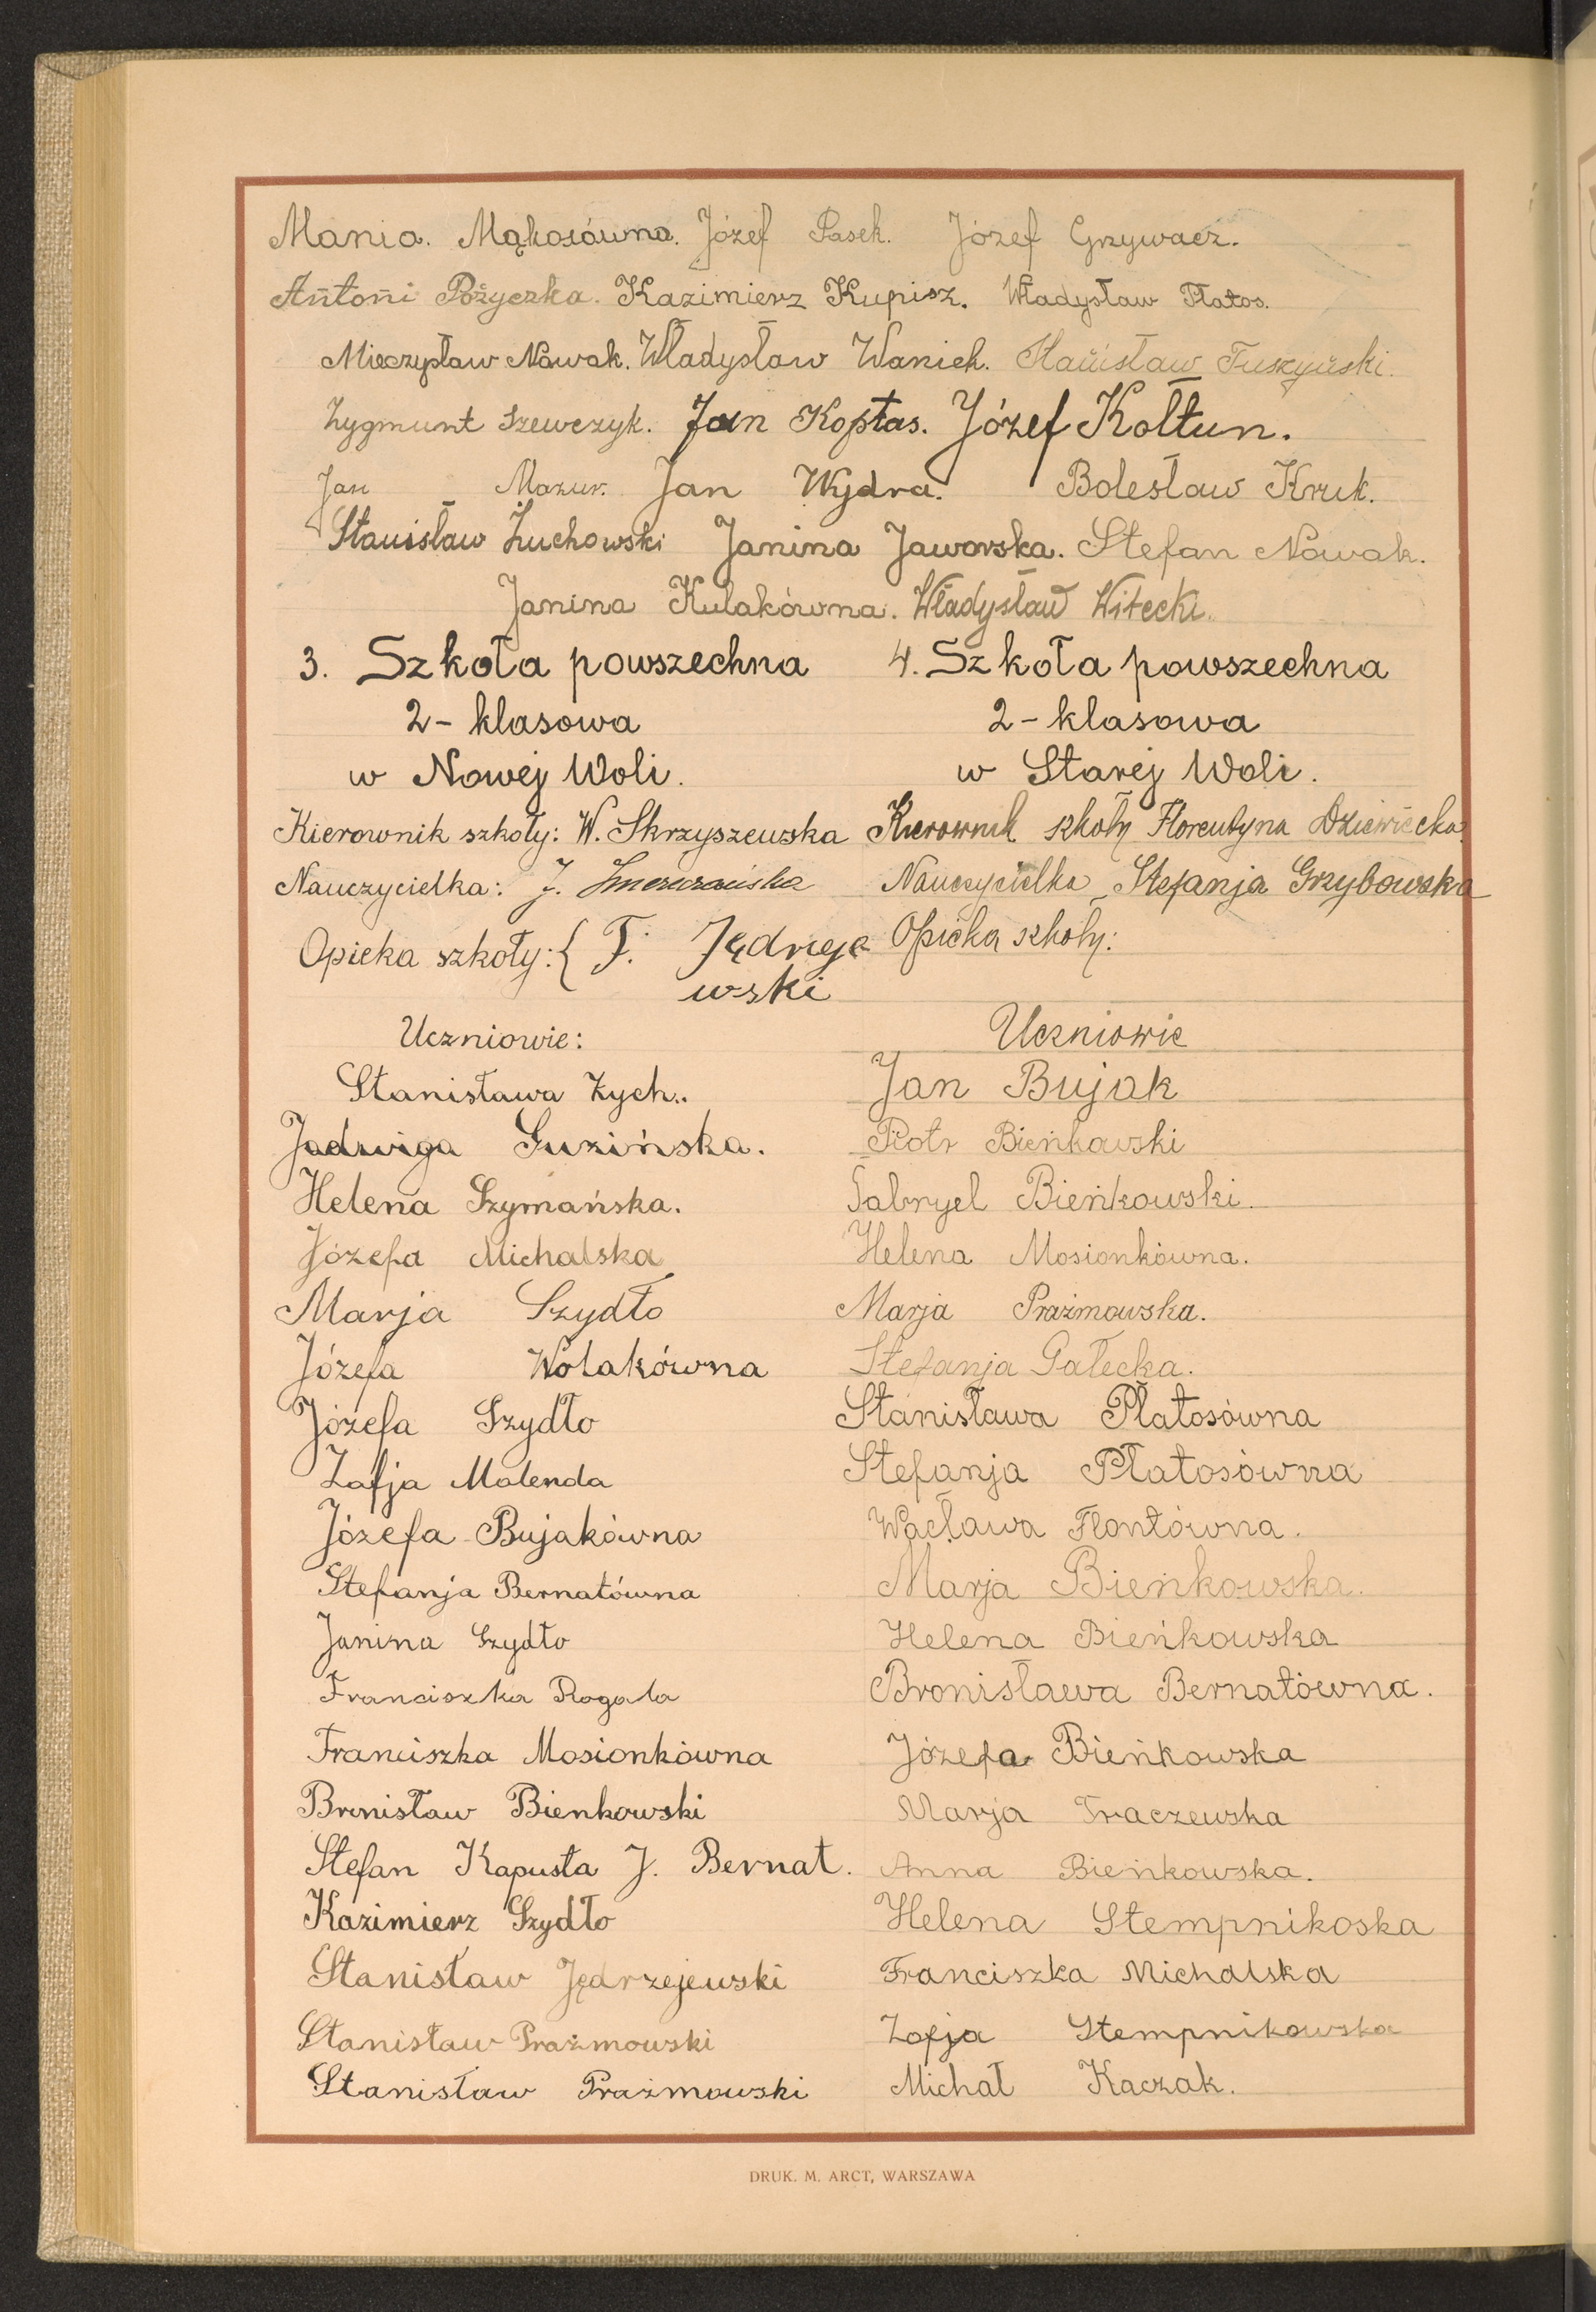 Mania. Mąkosówna. Józef Pasek. Józef Grzywacz.
Antoni Pożyczka. Kazimierz Kupisz. Władysław Płatos.
Mieczysław Nowak. Władysław Waniek. Stanisław Tuszyński.
Zygmunt Szewczyk. Jan Kopłas. Józef Kołtun.
Jan Mazur. Jan Wydra. Bolesław Kruk.
Stanisław Żuchowski Janina Jaworska. Stefan Nowak.
Janina Kulakówna. Władysław Witecki.
3. Szkoła powszechna
2-klasowa
w Nowej Woli.
Kierownik szkoły: W. Skrzyszewska
Nauczycielka: J.
Opieka szkoły: { F. Jędreje
wski
Uczniowie:
Stanisława Zych..
Jadwiga Guzińska.
Helena Szymańska.
Józefa Michalska
Marja Szydło
Józefa Wolakówna
Józefa Szydło
Zofja Molenda
Józefa Bujakówna
Stefanja Bernatówna
Janina Szydło
Franciszka Rogala
Franciszka Mosionkówna
Bronisław Bienkowski
Stefan Kapusta J. Bernat.
Kazimierz Szydło
Stanisław Jędrzejewski
Stanisław Prażmowski
Stanisław Prażmowski
4. Szkoła powszechna
2-klasowa
w Starej Woli.
Kierownik szkoły Florentyna Dziewiecka
Nauczycielka Stefanja Grzybowska
Opieka szkoły:
Uczniowie
Jan Bujak
Piotr Bieńkowski
Gabryel Bieńkowski.
Helena Mosionkówna.
Marja Prażmowska.
Stefanja Gałecka.
Stanisława Płatosówna
Stefanja Płatosówna
Wacława Flontówna.
Marja Bieńkowska.
Helena Bieńkowska
Bronisława Bernatówna.
Józefa Bieńkowska
Marja Traczewska
Anna Bieńkowska.
Helena Stempnikoska
Franciszka Michalska
Zofja Stempnikowska
Michał Kaczak.
DRUK. M. ARCT, WARSZAWA